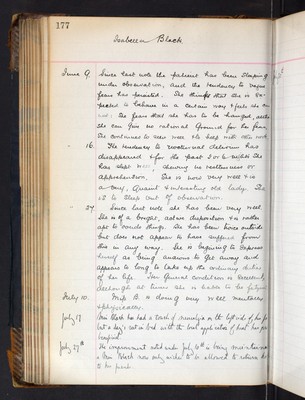 177
Isabella Black
June 9. Since last note the patient has been sleeping
under observation, and the tendency to vague
fears has persisted. She thinks that she is ex-
pected to behave in a certain way & feels she can
not: she fears that she has to be hanged, altho
she can give no rational ground for her fear.
She continues to sew well & to help with other work.
16. The tendency to nocturnal delirium has
disappeared & for the past 2 or 3 nights she
has slept well showing no restlessness or
apprehension. She is now very well & is
a cosy, quaint & interesting old lady. She
is to sleep out of observation.
27. Since last note she has been very well.
She is of a bright, active disposition & is rather
apt to overdo things. She has been hours outside
but does not appear to have suffered from
this in any way. She is beginning to express
herself as being anxious to get away and
appears to long to take up the ordinary duties
of her life. Her general condition is excellent,
although at times she is liable to be fatigued
July 10. Miss B. is doing very well mentally
& physically.
July 17 Miss Black has had a touch of neuralgia on the left side of her face
but a day's rest in bed with the local application of heat has
benefited.
July 27th The improvement noted under July 10th is being maintained
& Miss Black now only wishes to be allowed to return
to her work.